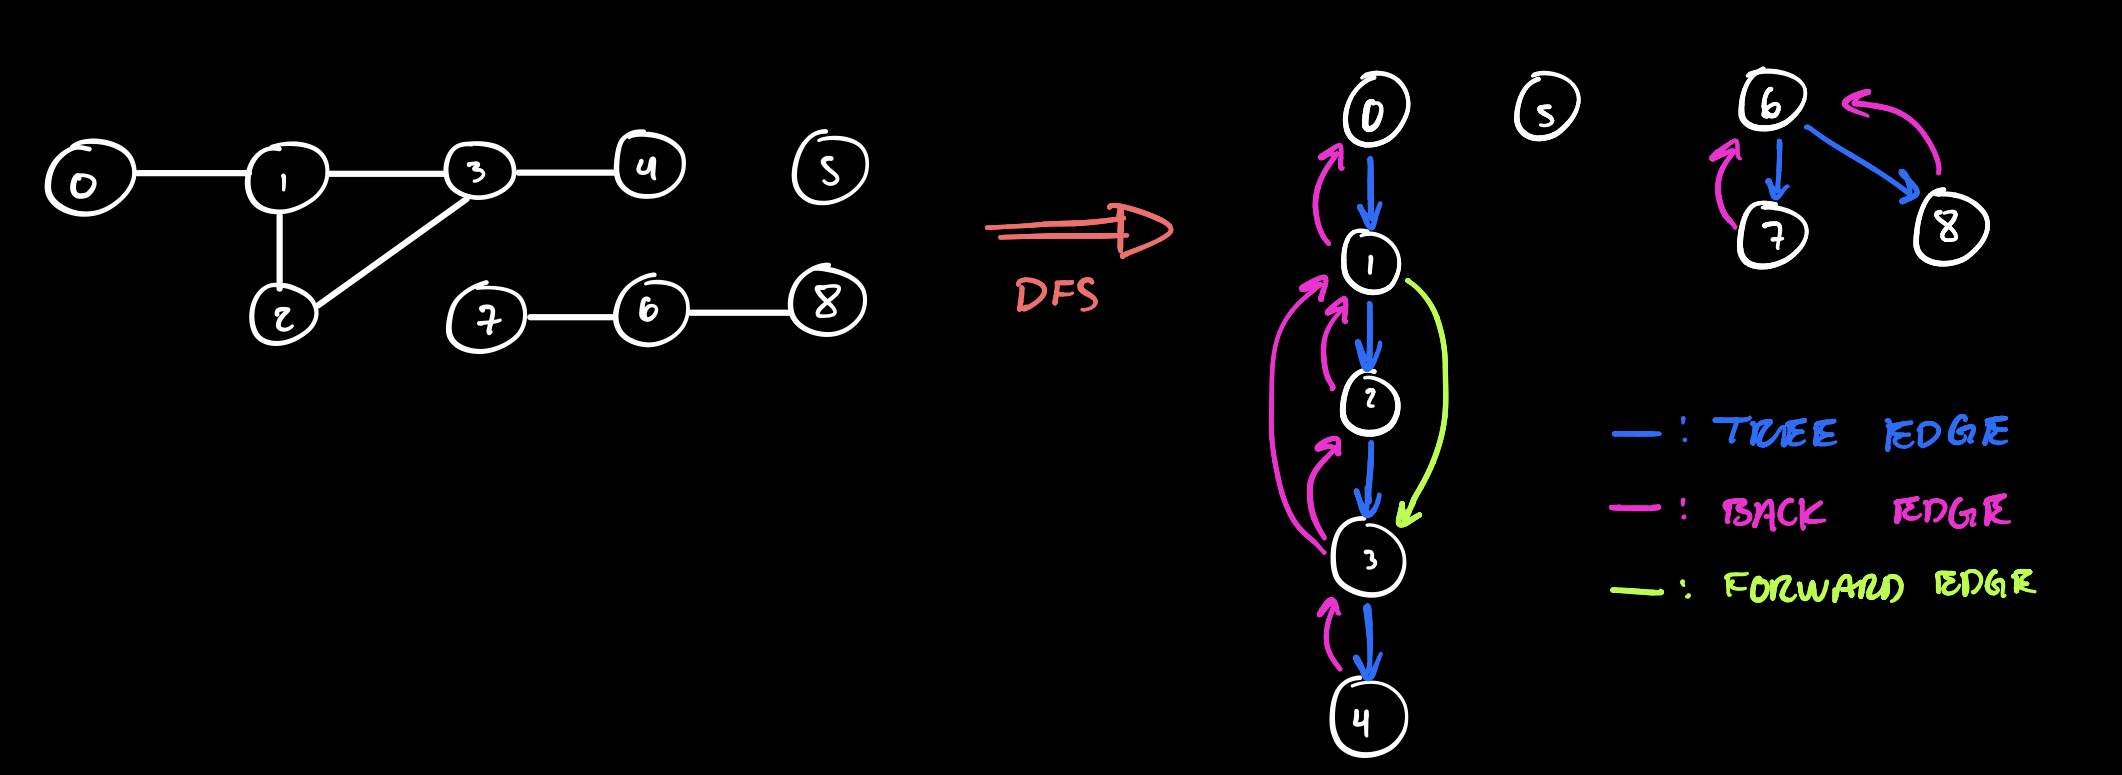 0 1 3 4 5
2 7 6 8
DFS
0 5 6
1 7 8
2
3
4
: TREE EDGE
: BACK EDGE
: FORWARD EDGE